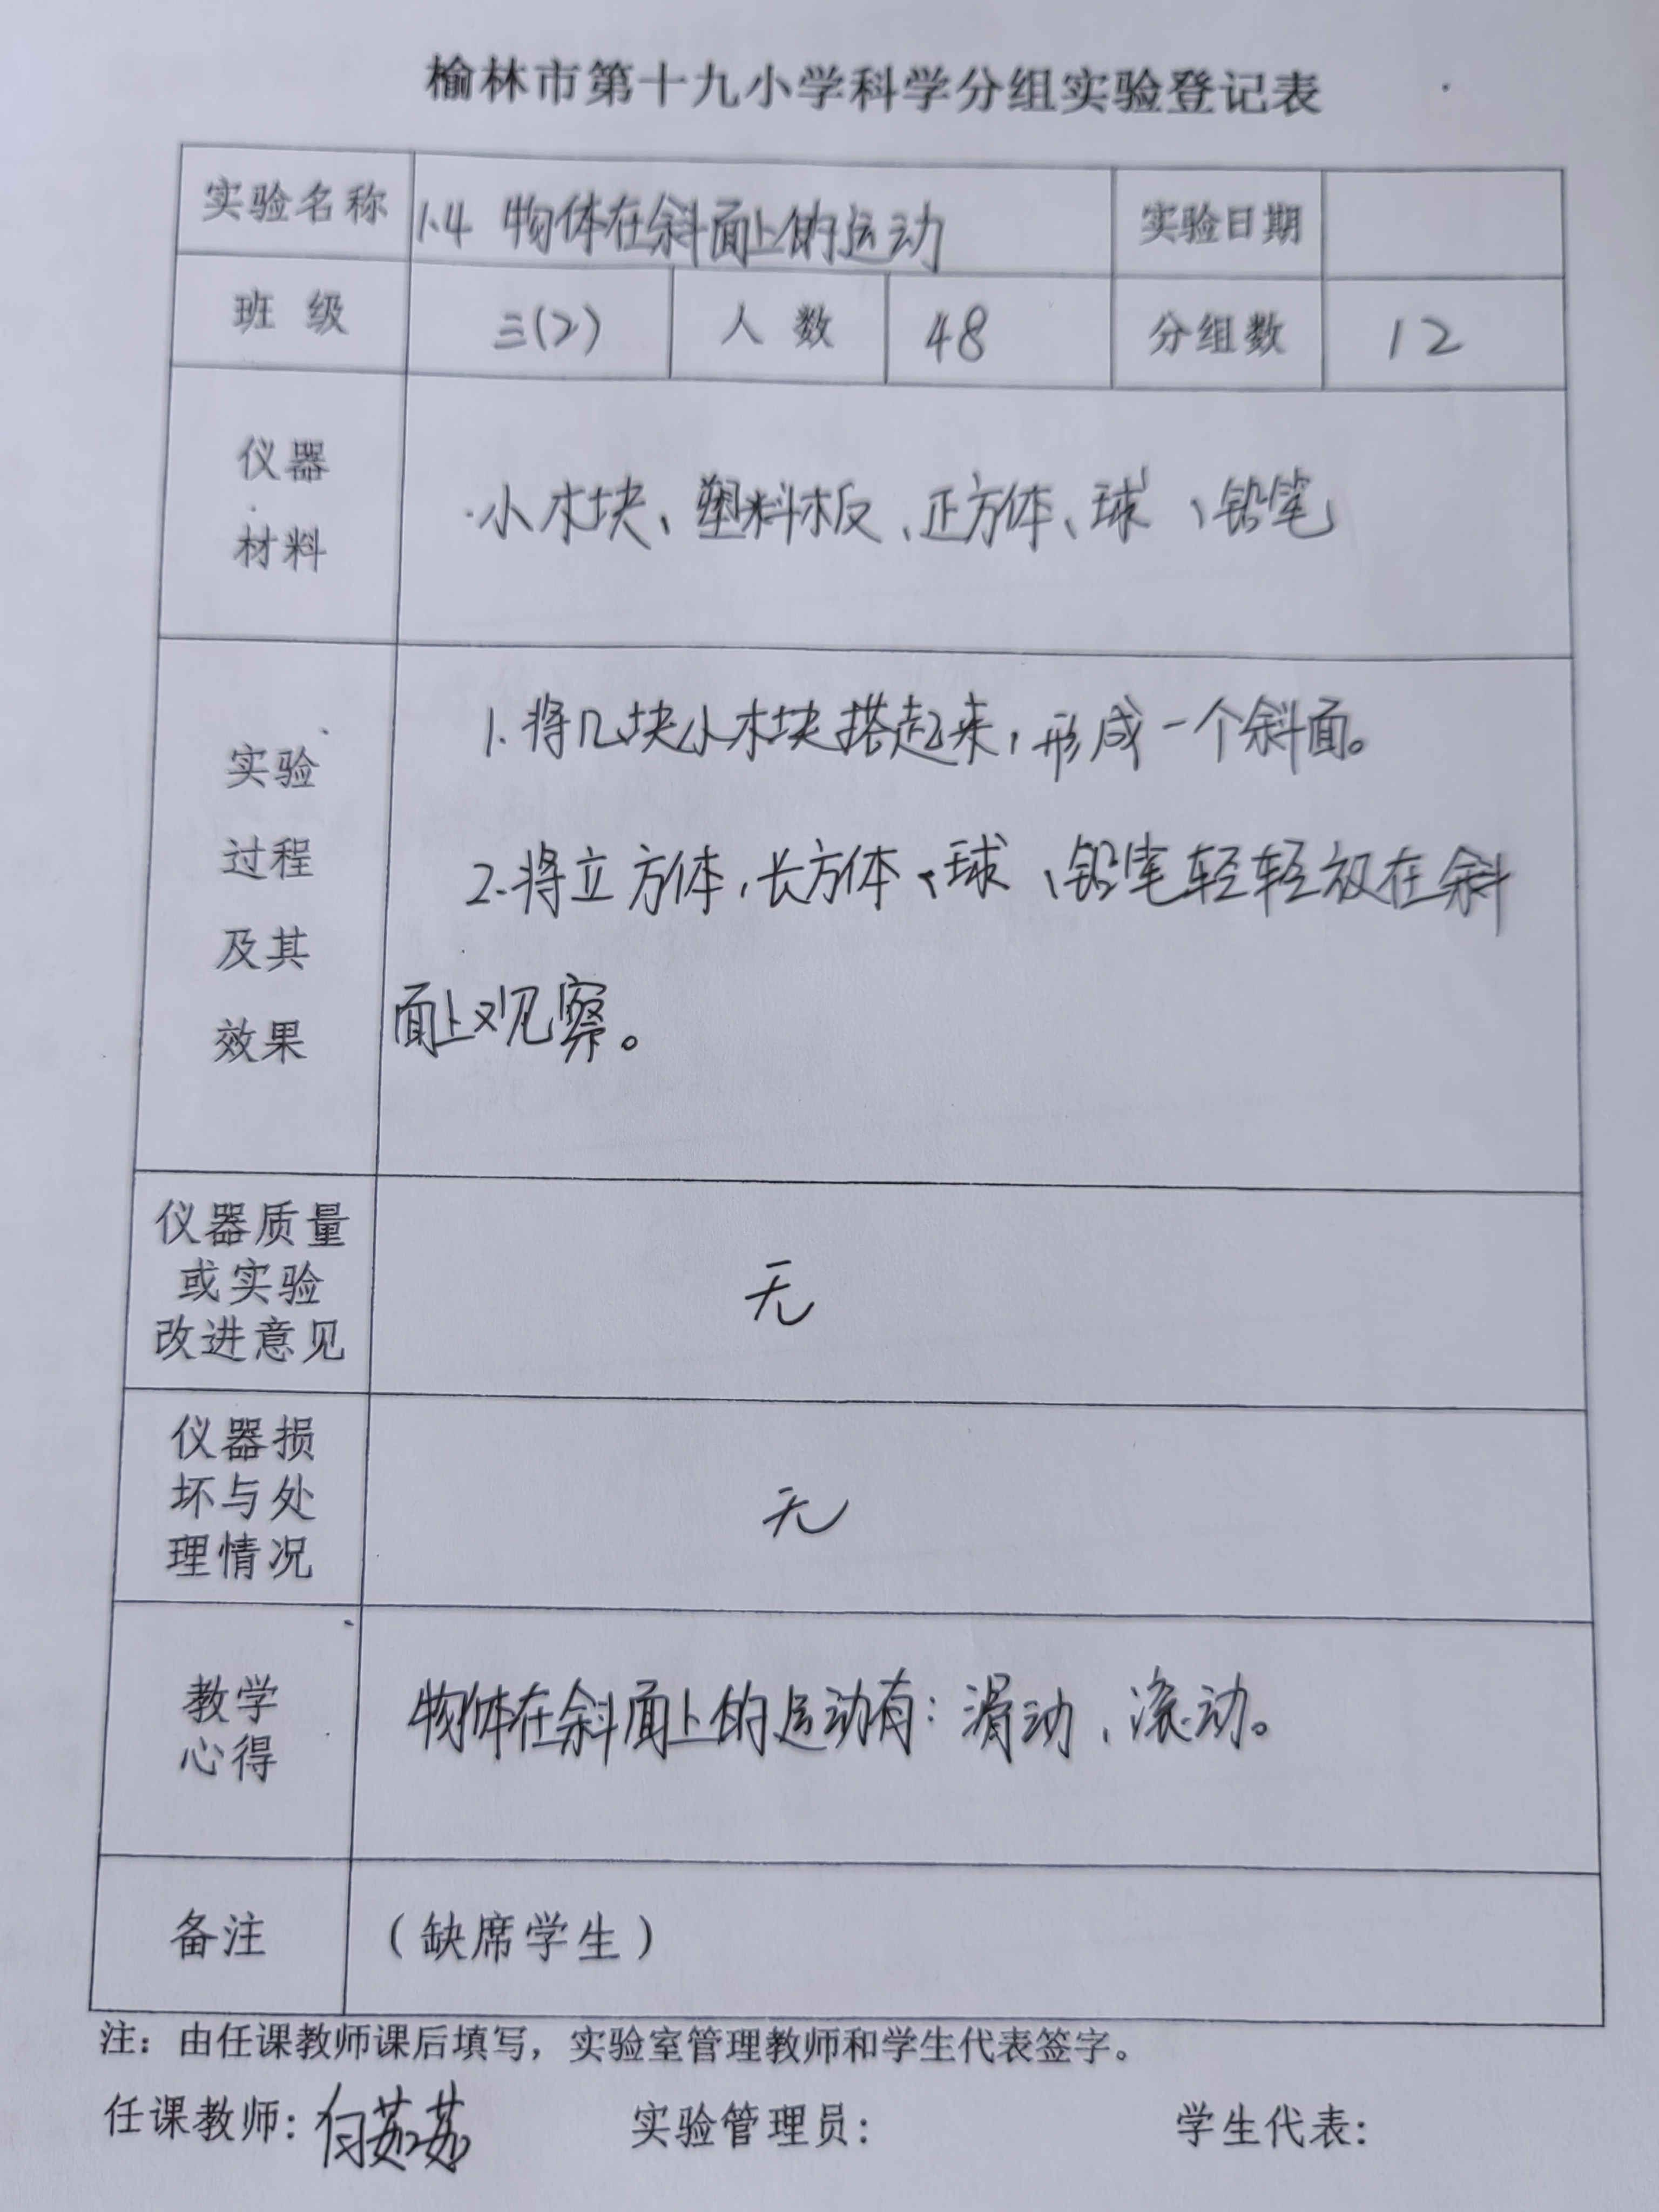 榆林市第十九小学科学分组实验登记表
实验名称 1.4 物体在斜面上的运动 实验日期
班 级 三(2) 人 数 48 分组数 12
仪器
材料
小木块、塑料板、正方体、球、铅笔
实验
过程
及其
效果
1.将几块小木块搭起来,形成一个斜面。
2.将立方体,长方体、球、铅笔轻轻放在斜
面上观察。
仪器质量
或实验
改进意见
无
仪器损
坏与处
理情况
无
教学
心得
物体在斜面上的运动有:滑动、滚动。
备注 (缺席学生)
注:由任课教师课后填写,实验室管理教师和学生代表签字。
任课教师: 实验管理员: 学生代表: